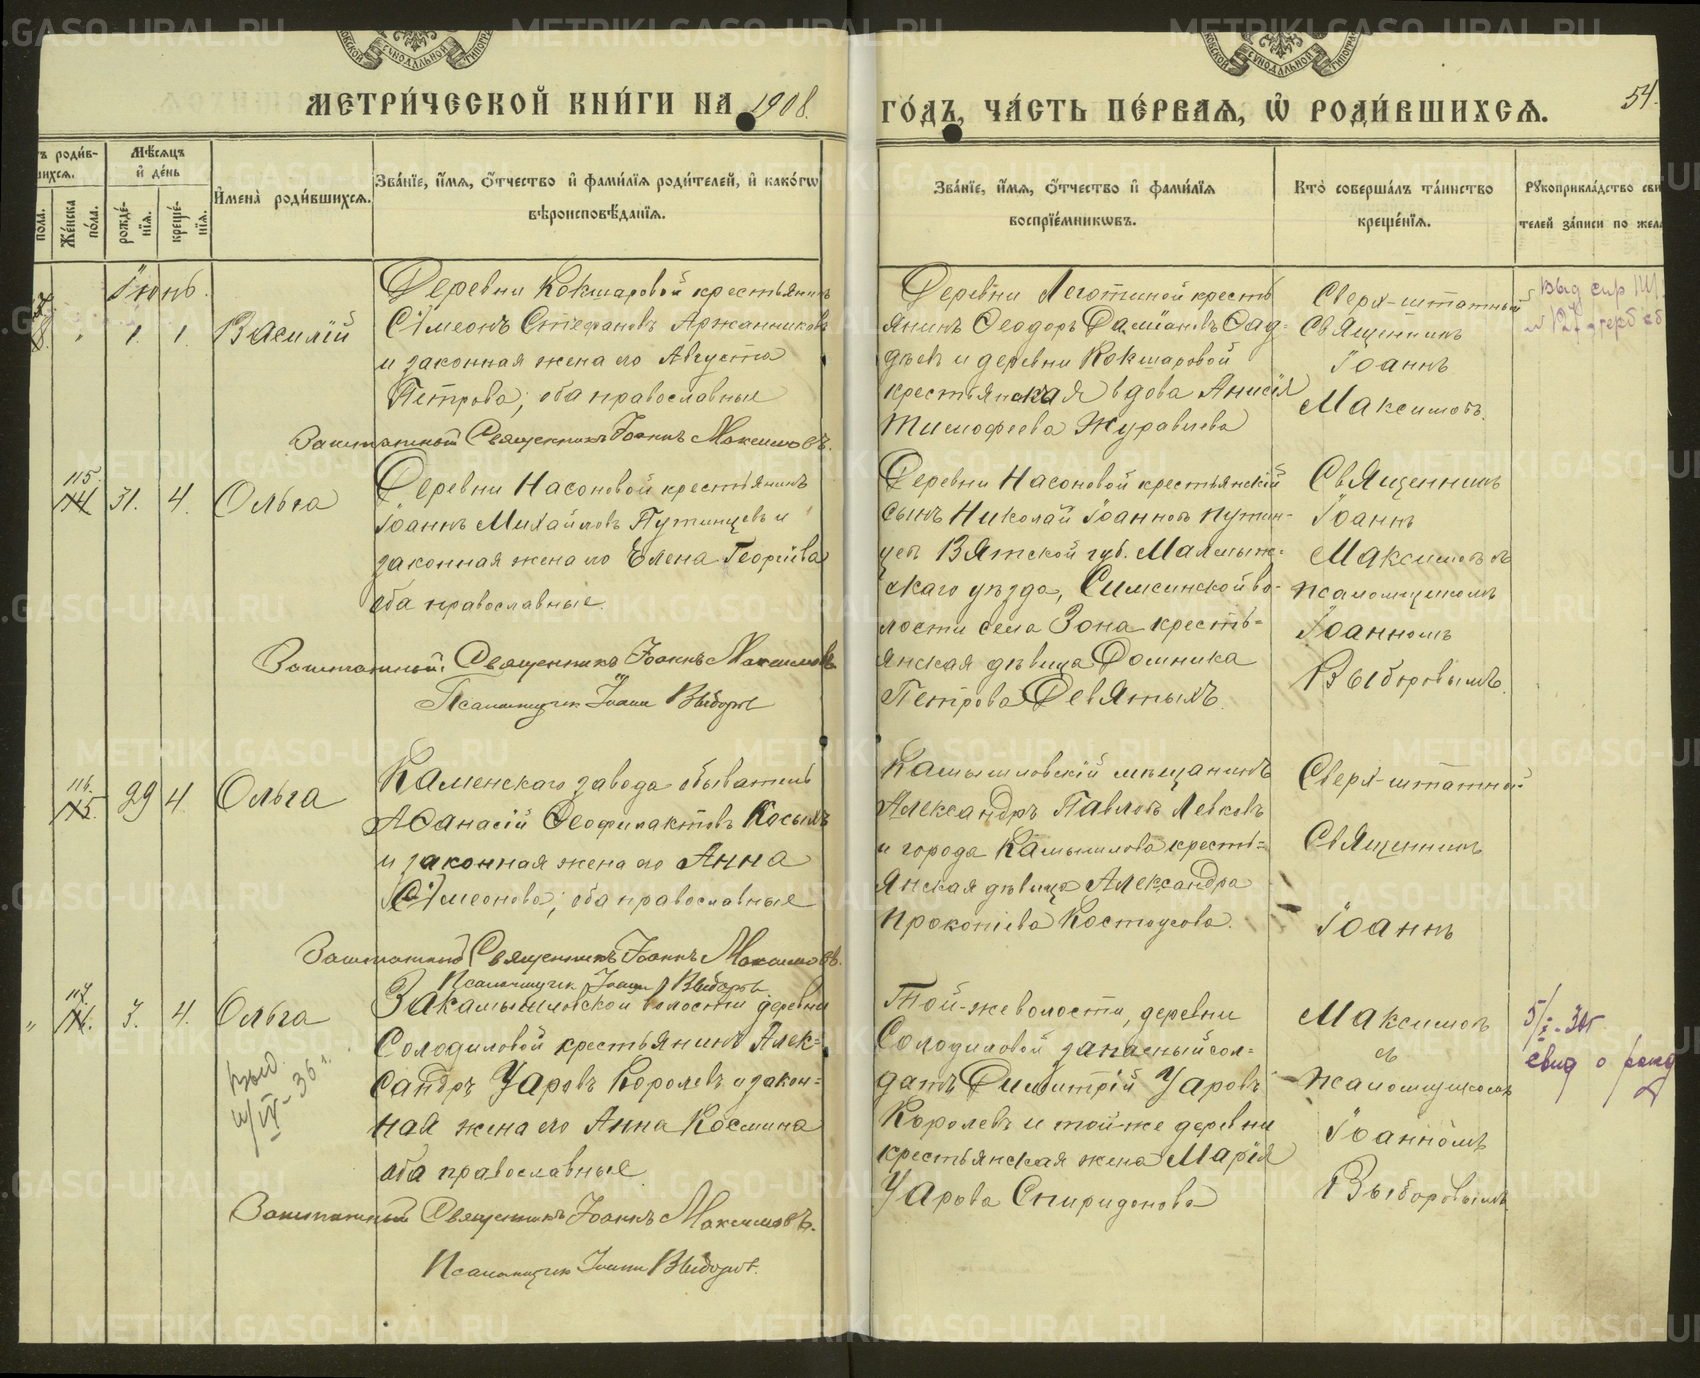 МЕТРИ́ЧЕСКОЙ КНИ́ГИ НА 1908.
ГО́ДЪ, ЧА́СТЬ ПЕ́РВАЯ, Ѡ РОДИ́ВШИХСЯ.
54.
Мѣсяцъ и де́нь
Же́нска по́ла.
рожде́нїя.
креще́нїя.
Имена̀ роди́вшихся.
Зва́нїе, и́мя, о́тчество и фами́лїя роди́телей, и како́гѡ
вѣроисповѣ́данїя.
Зва́нїе, и́мя, о́тчество и фами́лїя
воспрїе́мникѡвъ.
Кто̀ соверша́лъ та́инство
креще́нїя.
Рꙋкоприкла́дство сви
телей за́писи по жела
Іюнь.
1. 1. Василій
Деревни Кокшаровой крестьянинъ
Сѵмеонъ Стефановъ Аржанниковъ
и законная жена его Августа
Петрова; оба православные
Заштатный Священникъ Іоаннъ Максимовъ.
Деревни Леготиной кресть
янинъ Ѳеодоръ Даміановъ Ѳад-
дѣевъ и деревни Кокшаровой
крестьянская вдова Анисія
Тимофеева Журавлева
Сверх-штатный
Священникъ
Іоаннъ
Максимовъ.
115.
114 31. 4. Ольга
Деревни Насоновой крестьянинъ
Іоаннъ Михайловъ Путинцевъ и
законная жена его Елена Георгіева
оба православные.
Заштатный Священникъ Іоаннъ Максимовъ
Псаломщик Іоанн Выборов
Деревни Насоновой крестьянскій
сынъ Николай Іоанновъ Путин-
цевъ Вятской губ. Малмыж-
скаго уѣзда, Симсинской во-
лости села Зона кресть-
янская дѣвица Домника
Петрова Девятыхъ.
Священникъ
Іоаннъ
Максимовъ съ
псаломщикомъ
Іоанномъ
Выборовымъ.
116.
115. 29 4. Ольга
Каменскаго завода обыватель
Аѳанасій Ѳеофилактовъ Косыхъ
и законная жена его Анна
Сѵмеонова; оба православные
Заштатный Священникъ Іоаннъ Максимовъ.
Псаломщик Іоанн Выборов.
Камышловскій мѣщанинъ
Александръ Павловъ Левковъ
и города Камышлова кресть-
янская дѣвица Александра
Прокопіева Костоусова.
Сверх-штатный
Священникъ
Іоаннъ
117.
116. 3. 4. Ольга
Закамышловской волости деревни
Солодиловой крестьянинъ Алек-
сандръ Уаровъ Королевъ и закон-
ная жена его Анна Космина
оба православные.
Заштатный Священникъ Іоаннъ Максимовъ.
Псаломщик Іоанн Выборов.
Той-же волости, деревни
Солодиловой запасный сол-
датъ Димитрій Уаровъ
Королевъ и той-же деревни
крестьянская жена Марія
Уарова Спиридонова
Максимовъ
съ
псаломщикомъ
Іоанномъ
Выборовымъ